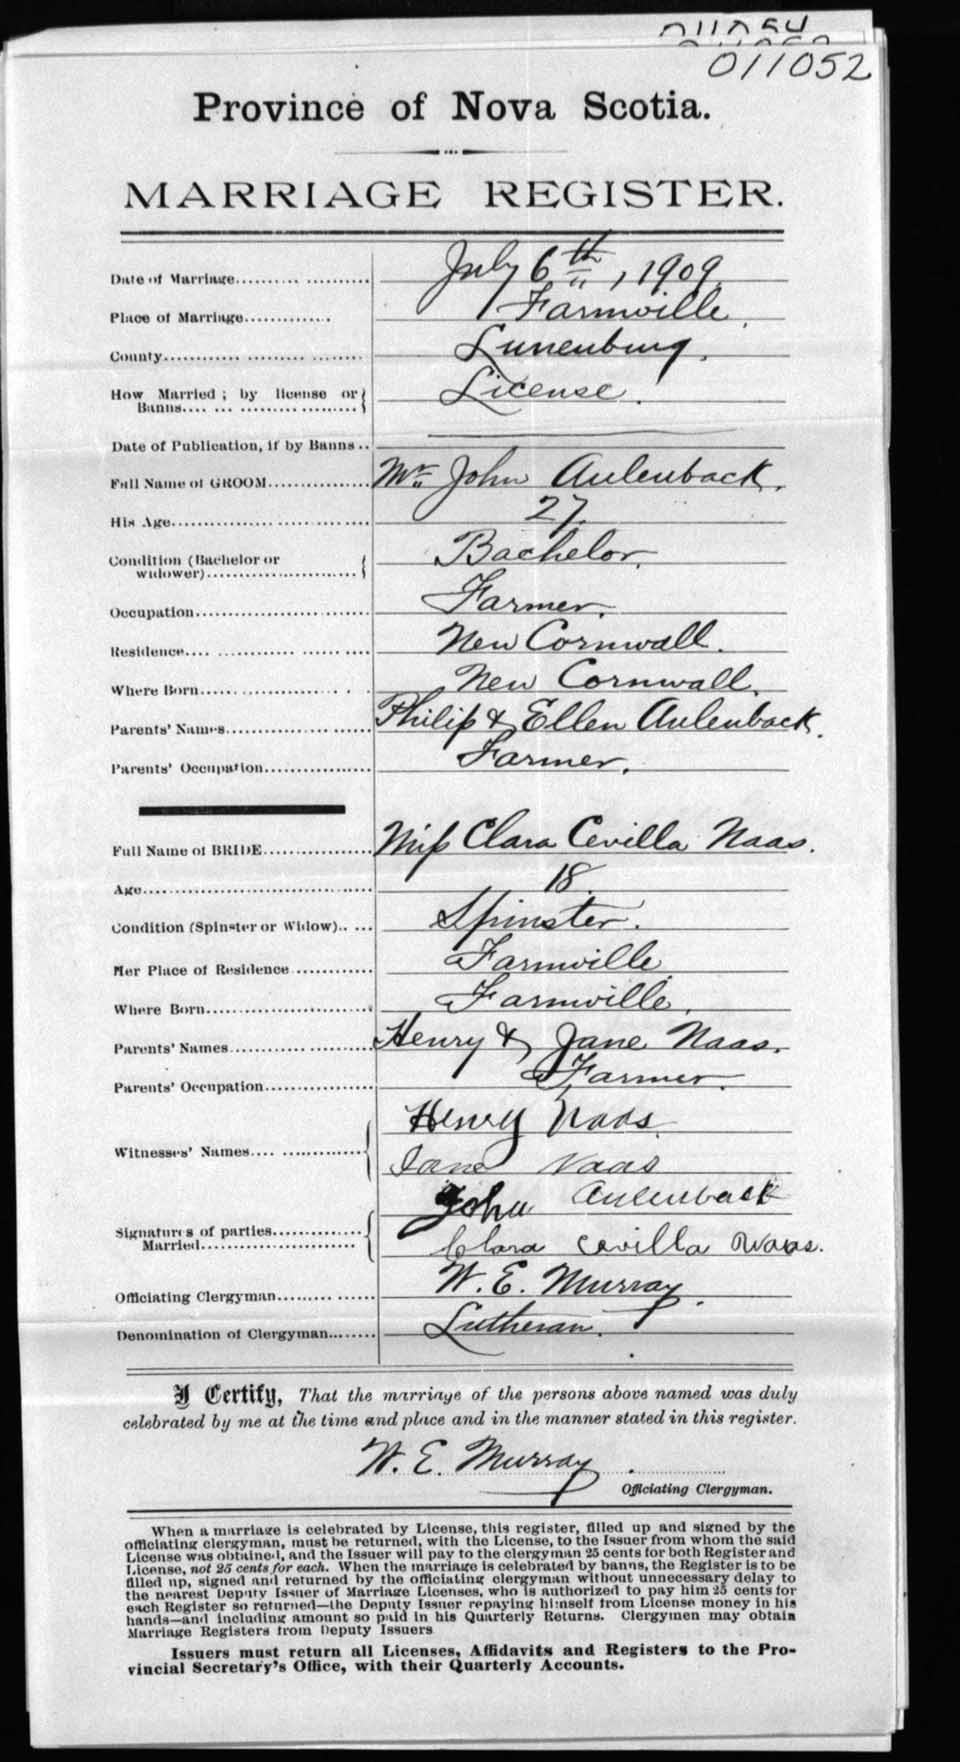 011054
011052
Province of Nova Scotia.
MARRIAGE REGISTER.
Date of Marriage.................. July 6th, 1909.
Place of Marriage............. Farmville.
County.................. Lunenburg.
How Married; by license or
Banns.................. License.
Date of Publication, if by Banns..
Full Name of GROOM............... Mr. John Aulenback.
His Age.................. 27.
Condition (Bachelor or
widower).................. Bachelor.
Occupation.................. Farmer.
Residence.................. New Cornwall.
Where Born.................. New Cornwall.
Parents' Names.................. Philip & Ellen Aulenback.
Parents' Occupation............... Farmer.
Full Name of BRIDE............... Miss Clara Cevilla Naas.
Age.................. 18.
Condition (Spinster or Widow)..... Spinster.
Her Place of Residence............ Farmville.
Where Born.................. Farmville.
Parents' Names.................. Henry & Jane Naas.
Parents' Occupation............... Farmer.
Henry Naas.
Witnesses' Names..................
Jane Naas
John Aulenback
Signatures of parties.............
Married..................
Clara Cevilla Naas.
Officiating Clergyman............. W. E. Murray.
Denomination of Clergyman........ Lutheran.
I Certify, That the marriage of the persons above named was duly
celebrated by me at the time and place and in the manner stated in this register.
W. E. Murray.
Officiating Clergyman.
When a marriage is celebrated by License, this register, filled up and signed by the
officiating clergyman, must be returned, with the License, to the Issuer from whom the said
License was obtained, and the Issuer will pay to the clergyman 25 cents for both Register and
License, not 25 cents for each. When the marriage is celebrated by banns, the Register is to be
filled up, signed and returned by the officiating clergyman without unnecessary delay to
the nearest Deputy Issuer of Marriage Licenses, who is authorized to pay him 25 cents for
each Register so returned—the Deputy Issuer repaying himself from License money in his
hands—and including amount so paid in his Quarterly Returns. Clergymen may obtain
Marriage Registers from Deputy Issuers
Issuers must return all Licenses, Affidavits and Registers to the Pro-
vincial Secretary's Office, with their Quarterly Accounts.